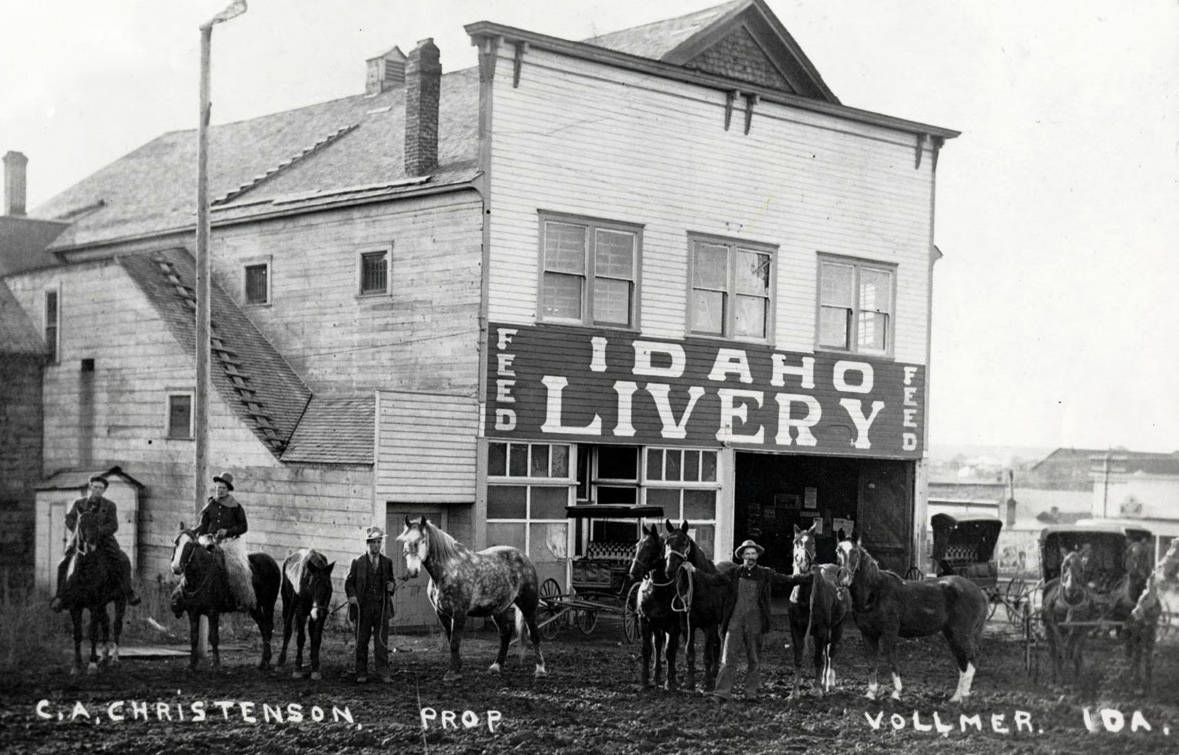 FEED
IDAHO
LIVERY
FEED
C.A. CHRISTENSON, PROP
VOLLMER. IDA.